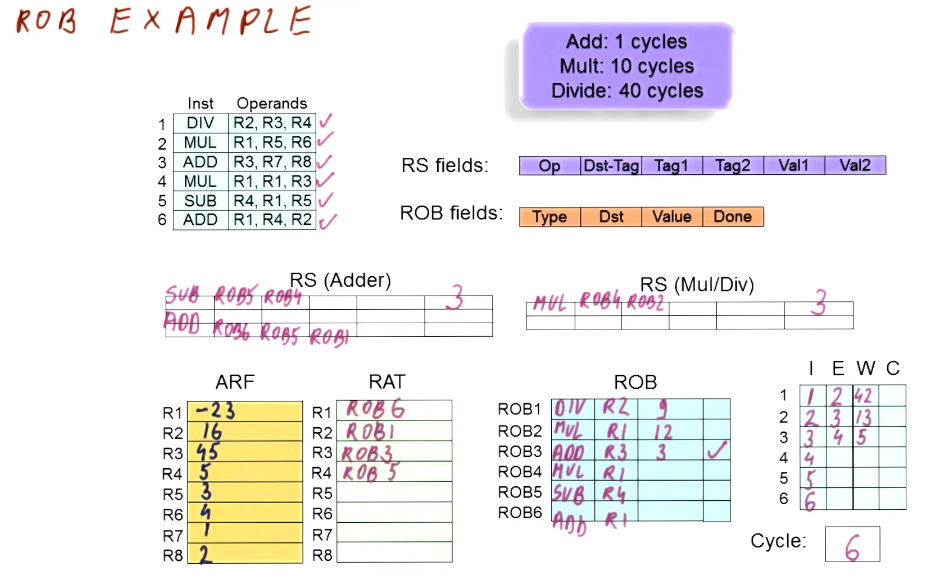 ROB EXAMPLE
Add: 1 cycles
Mult: 10 cycles
Divide: 40 cycles
Inst Operands
1 DIV R2, R3, R4 ✓
2 MUL R1, R5, R6 ✓
3 ADD R3, R7, R8 ✓
4 MUL R1, R1, R3 ✓
5 SUB R4, R1, R5 ✓
6 ADD R1, R4, R2 ✓
RS fields: Op Dst-Tag Tag1 Tag2 Val1 Val2
ROB fields: Type Dst Value Done
RS (Adder)
SUB ROB5 ROB4 3
ADD ROB6 ROB5 ROB1
RS (Mul/Div)
MUL ROB4 ROB2 3
ARF
R1 -23
R2 16
R3 45
R4 5
R5 3
R6 4
R7 1
R8 2
RAT
R1 ROB6
R2 ROB1
R3 ROB3
R4 ROB5
R5
R6
R7
R8
ROB
ROB1 DIV R2 9
ROB2 MUL R1 12
ROB3 ADD R3 3 ✓
ROB4 MUL R1
ROB5 SUB R4
ROB6 ADD R1
I E W C
1 1 2 42
2 2 3 13
3 3 4 5
4 4
5 5
6 6
Cycle: 6